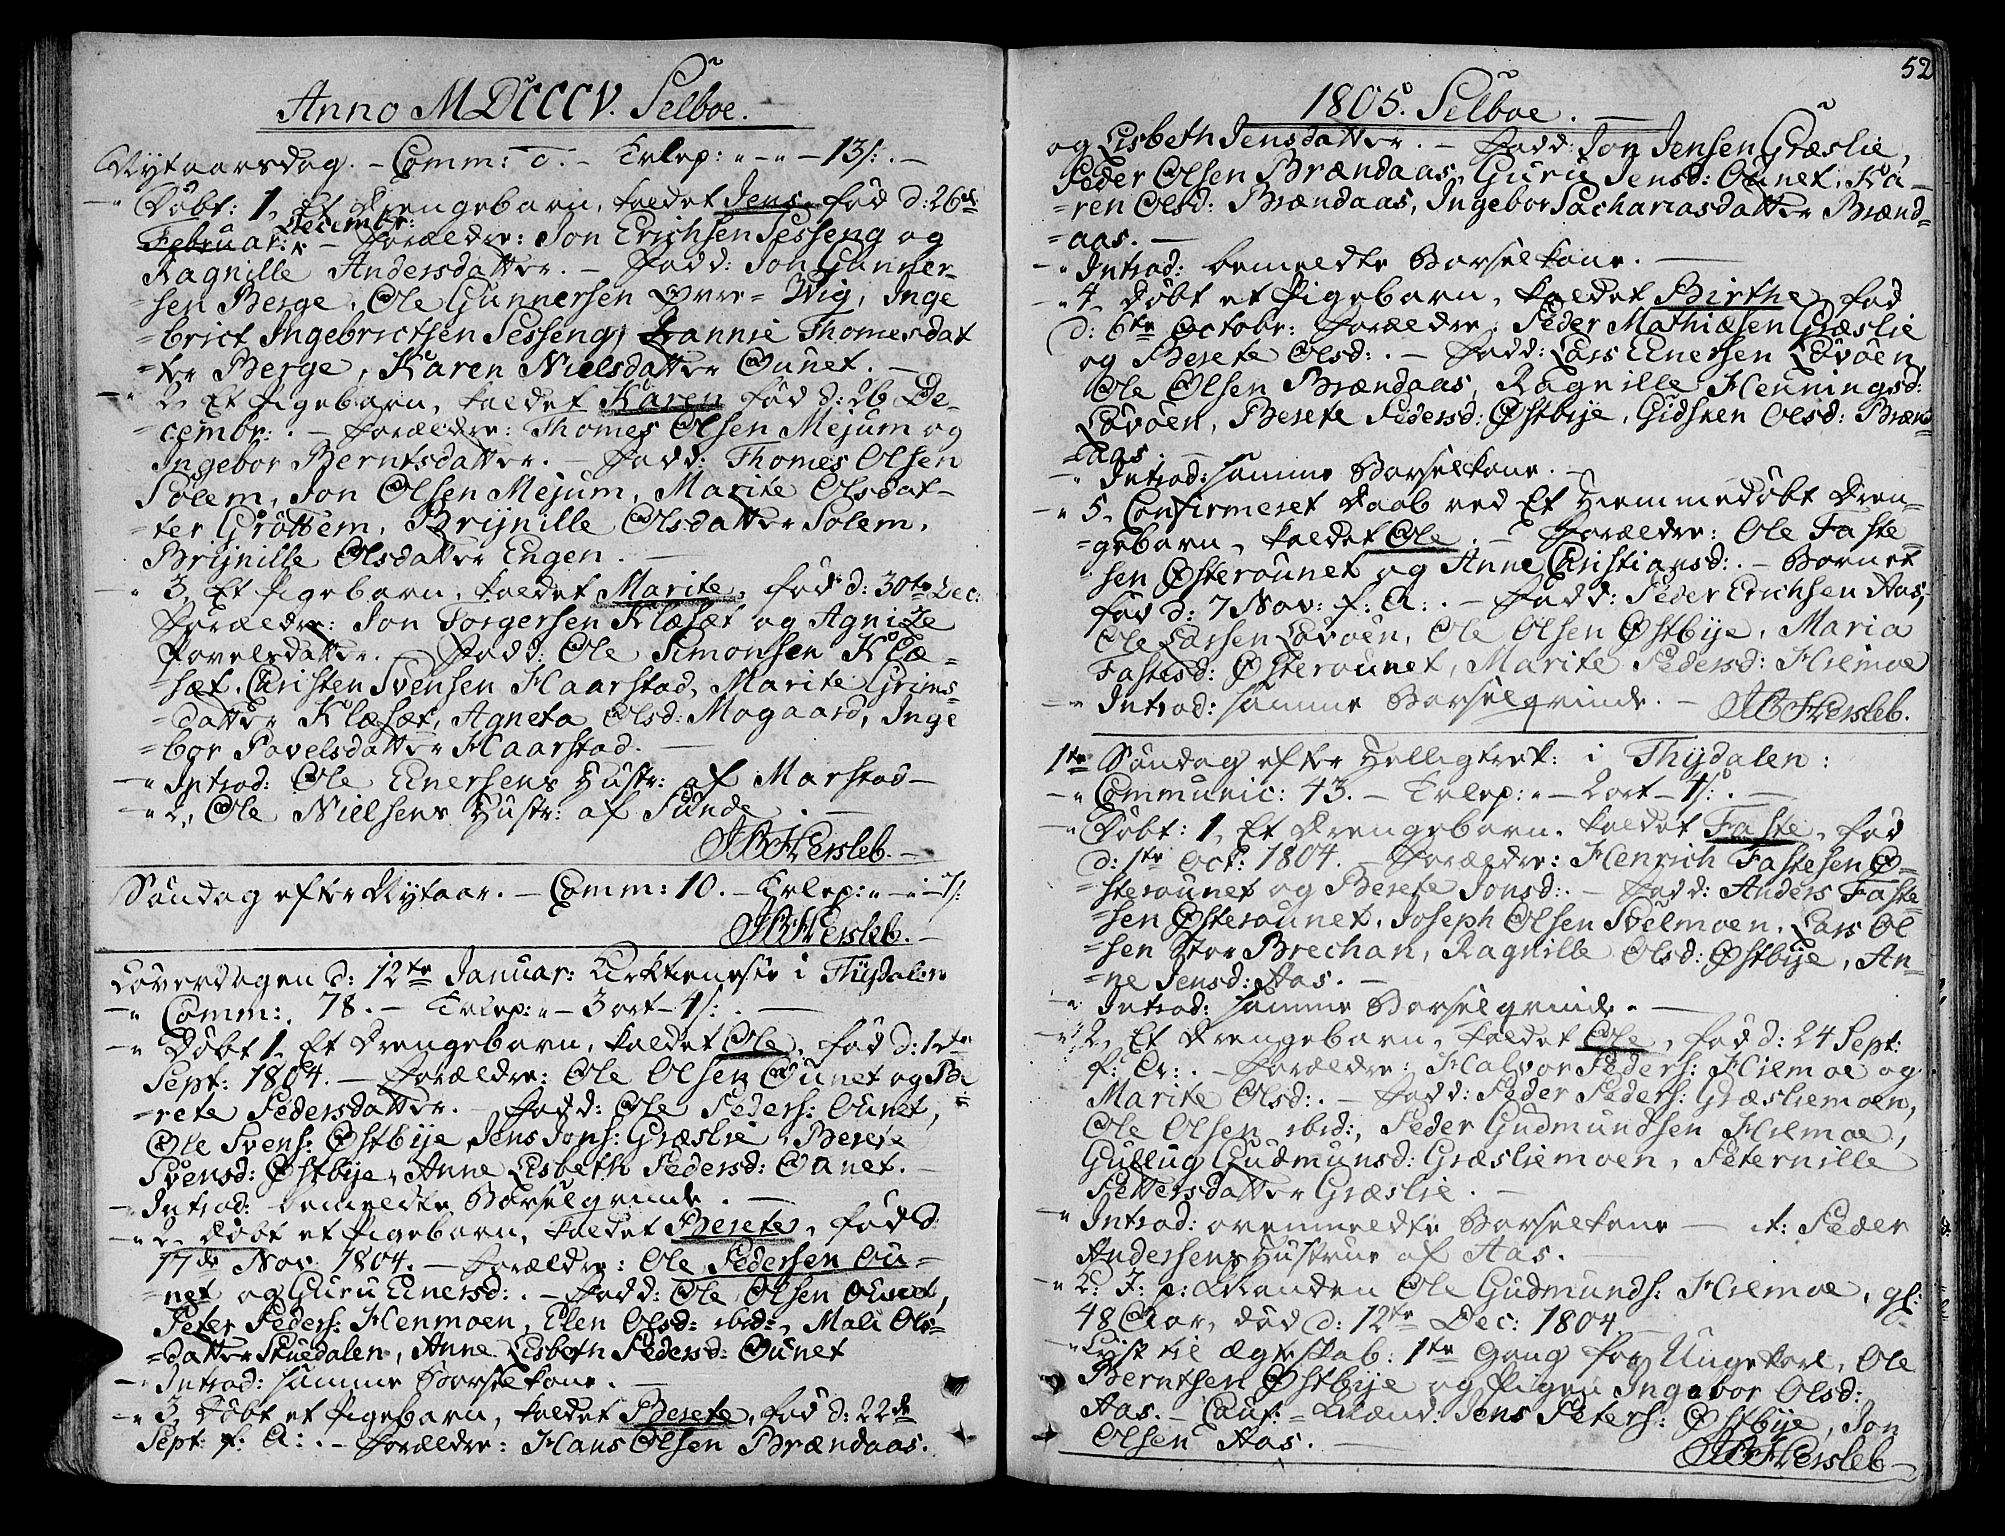 Anno MDCCCV. Selboe.
Nytaarsdag. - Comm: 0. - Tvlep: " - " - 13 s: . -
- " Døbt: 1, Et Drengebarn, kaldet Jens, fød d: 26de
Februar: Decembr: . - Forældre: Jon Erichsen Sesseng og
Ragnille Andersdatter. - Fadd: Jon Gunner-
-sen Berge, Ole Gunnersen Øvre=Wig, Inge
-brict Ingebrictsen Sesseng, Fannie Thomesdat
-ter Berge, Karen Nielsdatter Ounet. -
- " 2, Et Pigebarn, kaldet Karen fød d: 26 De-
-cembr: . - Forældre: Thomes Olsen Mejum og
Ingebor Berntsdatter. - Fadd: Thomes Olsen
Solem, Jon Olsen Mejum, Marite Olsdat-
-ter Grøttem, Brijnille Olsdatter Solem,
Brijnille Olsdatter Engen. -
- " 3, Et Pigebarn, kaldet Marite, fød d: 30te Dec:
Forældre: Jon Torgersen Klæsæt og Agnite
Povelsdatter. - Fadd: Ole Simonsen Klæ-
-sæt, Christen Svensen Haarstad, Marite Grims-
-datter Klæsæt, Agneta Olsd: Mogaard, Inge
-bor Povelsdatter Haarstad. -
- " Introd: Ole Enersens Hustr: af Marstad -
- " 2, Ole Nielsens Hustr: af Sunde . -
JBHersleb. -
Søndag efter Nytaar. - Comm: 10. - Tvlep: " - " - s:
JBHersleb. -
Løverdagen d: 12te Januar: Kirketieneste i Thydalen
- " Comm: 78. - Tvlep: " - 3 ort - 1 s: . -
- " Døbt 1, Et Drengebarn, kaldet Ole, fød d: 1ste
Sept: 1804. - Forældre: Ole Olsen Ounet og Be
-rete Pedersdatter. - Fadd: Ole Peders: Ounet,
Ole Svens: Østbije, Jens Jons: Græslie, Berete
Svensd: Østbije, Anne Lisbeth Pedersd: Ounet. -
- " Introd: bemeldte Barselqvinde. -
- " 2, Døbt et Pigebarn, kaldet Berete, fød d:
17de Nov. 1804. - Forældre: Ole Pedersen Ou-
-net og Guru Enersd: . - Fadd: Ole Olsen Ounet,
Peter Peders: Henmoen, Elen Olsd: ibid:, Mali Ols-
-datter Stuedalen, Anne Lisbeth Pedersd: Ounet
- " Introd: samme Barselkone. -
- " 3, Døbt et Pigebarn, kaldet Berete, fød d: 22de
Sept: f: A: . - Forældre: Hans Olsen Brændaas.
52
1805. Selboe. -
og Lisbeth Jensdatter. - Fadd: Jon Jensen Græslie,
Peder Olsen Brændaas, Guru Jensd: Ounet, Ka-
-ren Olsd: Brændaas, Ingebor Sachariasdatter Brænd-
-aas. -
- " Introd: bemeldte Barselkone. -
- " 4, Døbt et Pigebarn, kaldet Birthe, fød
d: 6te Octobr: Forældre: Peder Mathiæsen Græslie
og Berete Olsd: . - Fadd: Lars Enersen Løvøen,
Ole Olsen Brændaas, Ragnille Henningsd:
Løvøen, Berete Pedersd: Østbije, Gidsken Olsd: Brænd-
-aas. -
- " Introd: samme Barselkone. -
- " 5, Confirmeret Daab ved Et Hiemmedøbt Dren-
-gebarn, kaldet Ole. - Forældre: Ole Faste-
-sen Østerounet og Anne Christiansd: . - Barnet
fød d: 7 Nov: f: A: . - Fadd: Peder Erichsen Aas,
Ole Larsen Løvøen, Ole Olsen Østbije, Maria
Fastesd: Østerounet, Marite Pedersd: Hilmoe
- " Introd: samme Barselqvinde. - JBHersleb.
1te Søndag efter Helligtrek: i Thydalen:
- " Communic: 43. - Tvlep: " - 2 ort - 1 s: . -
- " Døbt: 1, Et Drengebarn, kaldet Faste, fød
d: 1te Oct: 1804. - Forældre: Henrich Fastesen Ø-
-sterounet og Berete Jonsd: . - Fadd: Anders Faste-
-sen Østerounet, Joseph Olsen Svelmoen, Lars Ol
-sen Stor Brechan, Ragnille Olsd: Østbije, An-
-ne Jensd: Aas. -
- " Introd: samme Barselqvinde. -
- " 2, Et Drengebarn, kaldet Ole, fød d: 24 Sept:
f: A: . - Forældre: Halvor Peders: Hilmoe og
Marite Olsd: . - Fadd: Peder Peders: Græsliemoen,
Ole Olsen ibid:, Peder Gudmundsen Hilmoe,
Gullug Gudmunsd: Græsliemoen, Peternille
Pettersdatter Græslie. -
- " Introd: ovenmeldte Barselkone - it: Peder
Andersens Hustrue af Aas.
- " D: J: p: Manden Ole Gudmunds: Hilmoe, gl:
48 Aar, død d: 12te Dec: 1804 -
- " Lyst til Ægteskab: 1te Gang for Ungekarl, Ole
Berntsen Østbije og Pigen Ingebor Olsd:
Aas. - Caut: = Mænd: Jens Peters: Østbije, Jon
Olsen Aas. -
JBHersleb -